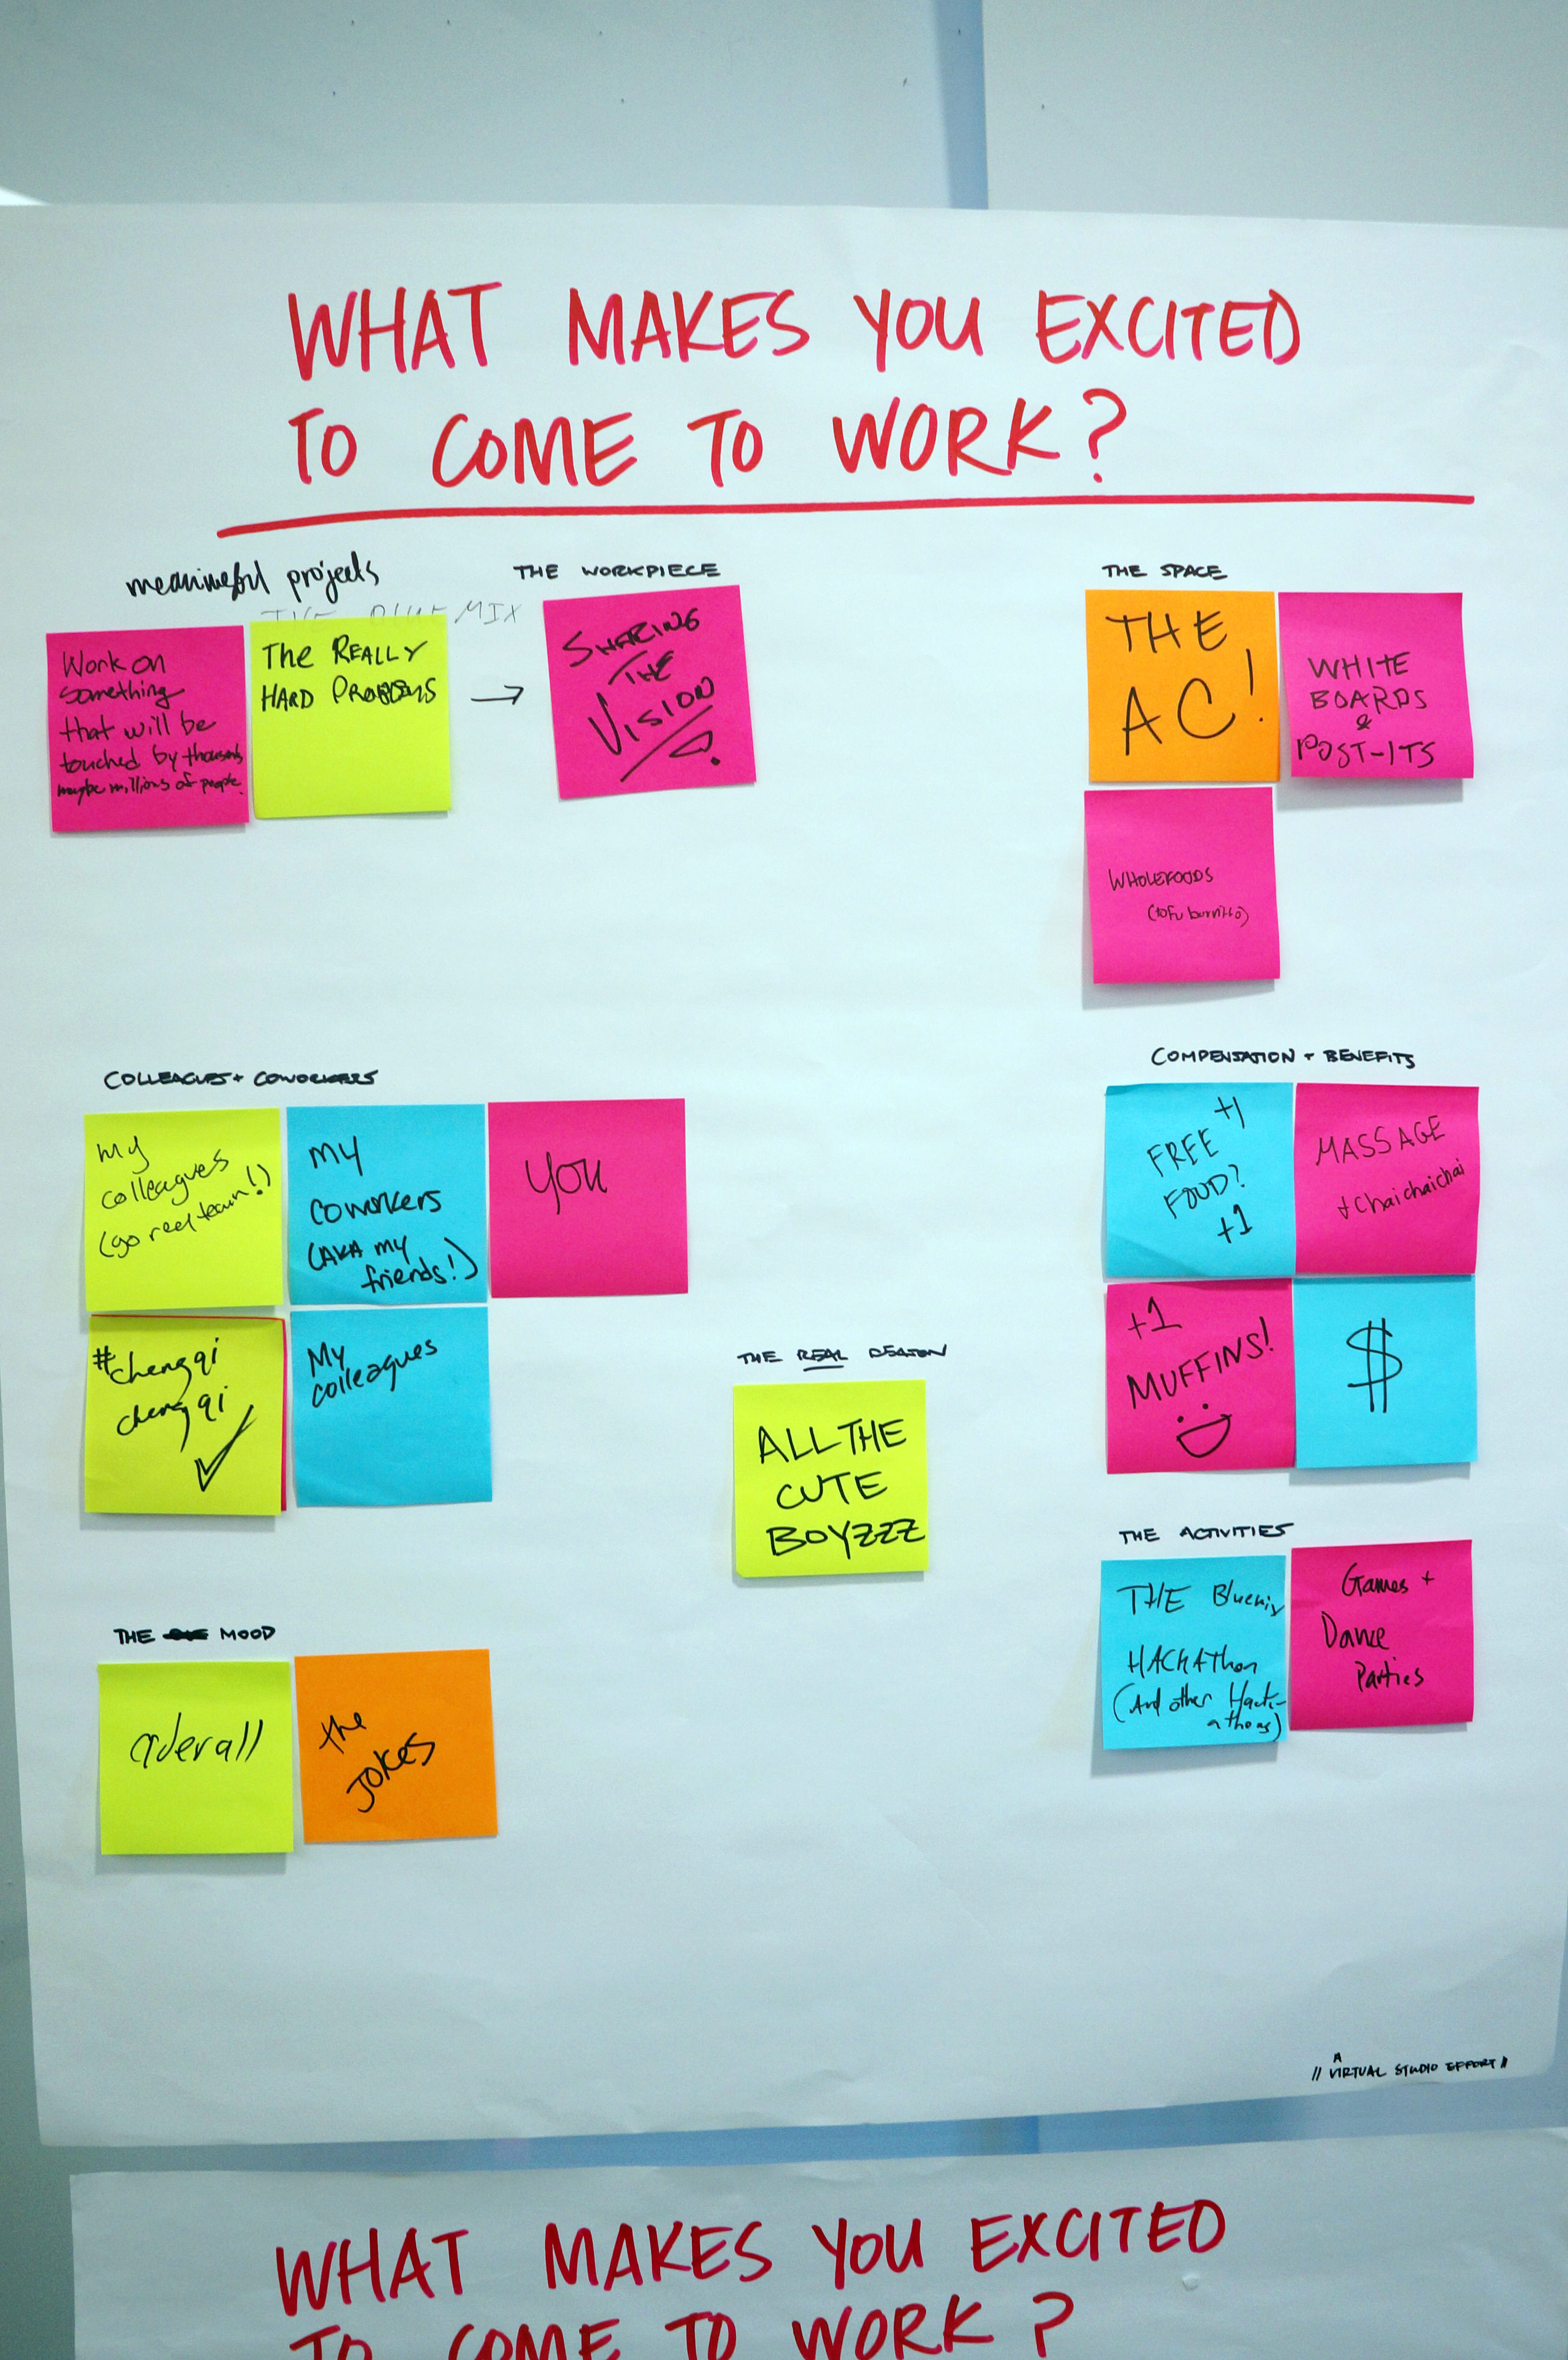 WHAT MAKES YOU EXCITED
TO COME TO WORK?
meaningful projects
Work on
something
that will be
touched by thousands
maybe millions of people.
The REALLY
HARD PROBLEMS
THE WORKPIECE
SHARING
THE
VISION
THE SPACE
THE
AC!
WHITE
BOARDS
&
POST-ITS
WHOLEFOODS
(tofu burrito)
COLLEAGUES + COWORKERS
my
colleagues
(go reel team!)
my
coworkers
(AKA my
friends!)
you
#chengqi
chengqi
My
colleagues
THE REAL REASON
ALL THE
CUTE
BOYZZZ
COMPENSATION + BENEFITS
+1
FREE
FOOD?
+1
MASSAGE
+ chaichaichai
+1
MUFFINS!
$
THE ACTIVITIES
THE Bluemix
HACKAThon
(And other Hack-
athons)
Games +
Dance
Parties
THE MOOD
aderall
the
JOKES
// A VIRTUAL STUDIO EFFORT //
WHAT MAKES YOU EXCITED
TO COME TO WORK?